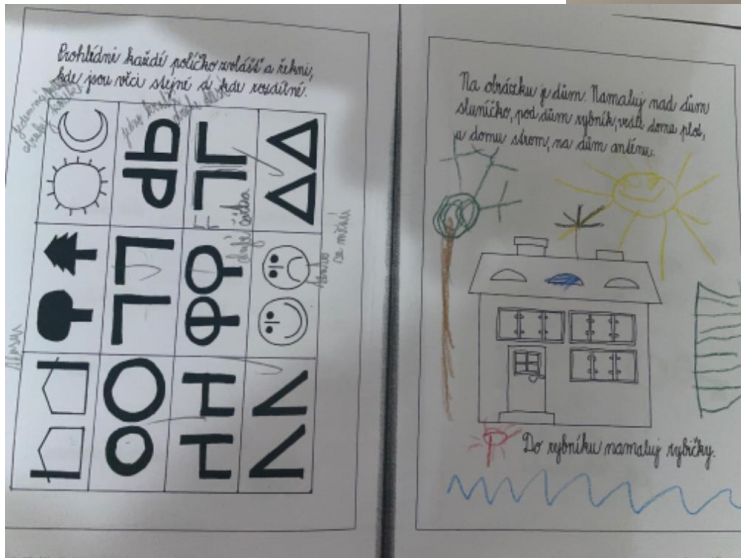 Prohlédni každé políčko zvlášť a řekni,
kde jsou věci stejné a kde rozdílné.
Na obrázku je dům. Namaluj nad dům
sluníčko, pod dům rybník, vedle domu plot,
u domu strom, na dům anténu.
Do rybníku namaluj rybičky.